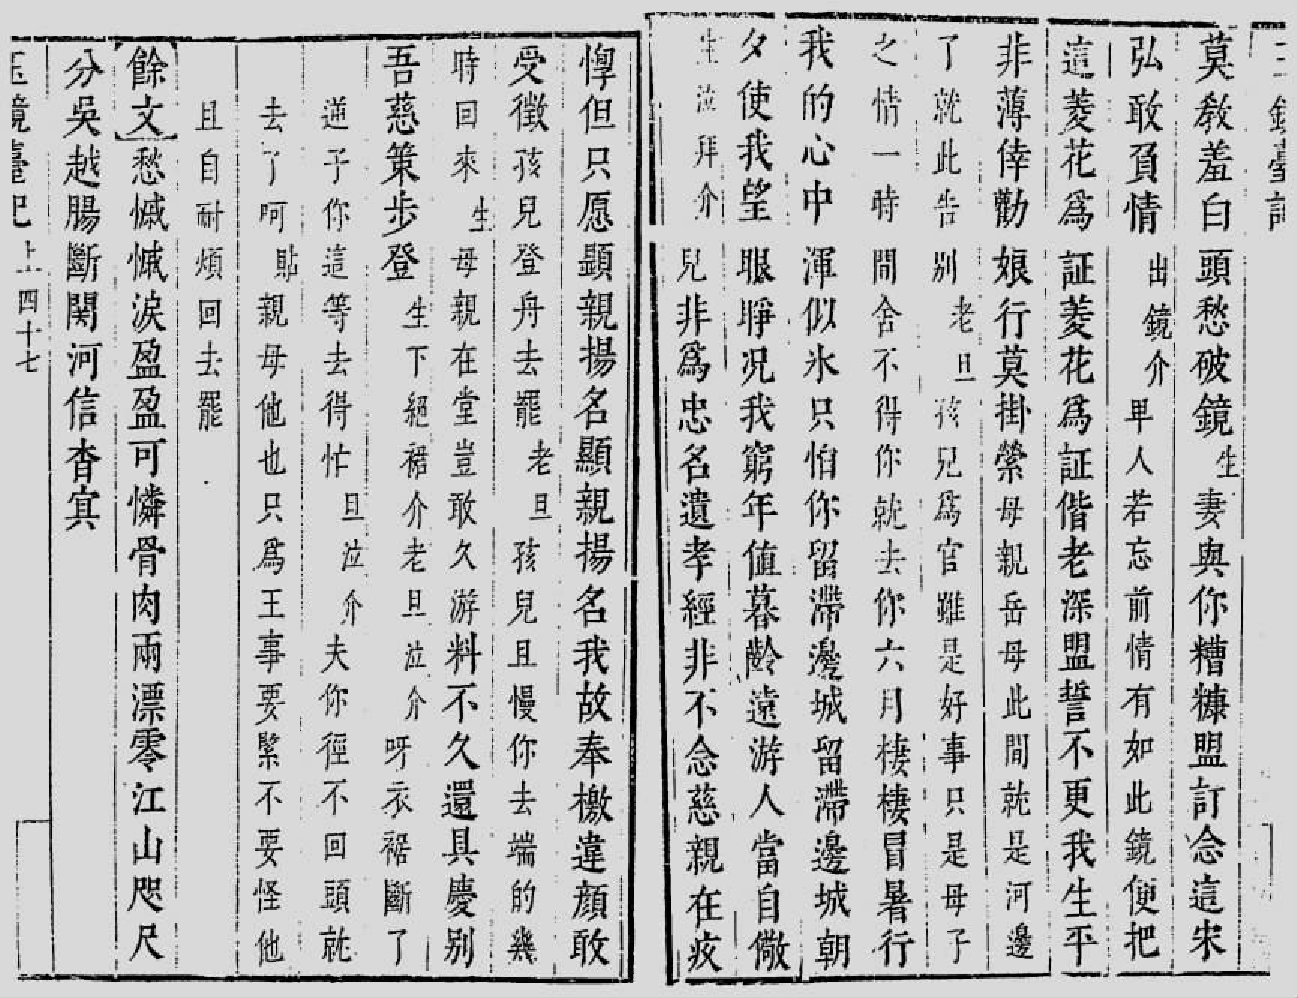 玉鏡臺記
莫敎羞白頭愁破鏡生妻與你糟糠盟訂念這宋
弘敢負情出鏡介卑人若忘前情有如此鏡便把
這菱花爲証菱花爲証偕老深盟誓不更我生平
非薄倖勸娘行莫掛縈母親岳母此間就是河邊
了就此告別老旦孩兒爲官雖是好事只是母子
之情一時間舍不得你就去你六月棲棲冒暑行
我的心中渾似氷只怕你留滯邊城留滯邊城朝
夕使我望眼睜况我窮年值暮齡遠游人當自儆
生泣拜介兒非爲忠名遺孝經非不念慈親在疚
惸但只愿顯親揚名顯親揚名我故奉檄違顔敢
受徵孩兒登舟去罷老旦孩兒且慢你去端的幾
時回來生母親在堂豈敢久游料不久還具慶別
吾慈策步登生下絕裾介老旦泣介呀衣裾斷了
逆子你這等去得忙旦泣介夫你徑不回頭就
去了呵貼親母他也只爲王事要緊不要怪他
且自耐煩回去罷
餘文愁慽慽淚盈盈可憐骨肉兩漂零江山咫尺
分吳越腸斷関河信杳㝠
玉鏡臺記 上 四十七